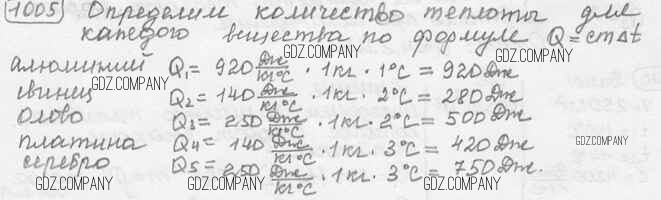 1005 Определим количество теплоты для
каждого вещества по формуле Q=cmΔt
GDZ.COMPANY
алюминий Q₁= 920 Дж/кг°С · 1кг · 1°С = 920 Дж
свинец Q₂= 140 Дж/кг°С · 1кг · 2°С = 280 Дж
олово Q₃= 250 Дж/кг°С · 1кг · 2°С = 500 Дж
платина Q₄= 140 Дж/кг°С · 1кг · 3°С = 420 Дж
серебро Q₅= 250 Дж/кг°С · 1кг · 3°С = 750 Дж.
GDZ.COMPANY GDZ.COMPANY GDZ.COMPANY
GDZ.COMPANY GDZ.COMPANY GDZ.COMPANY